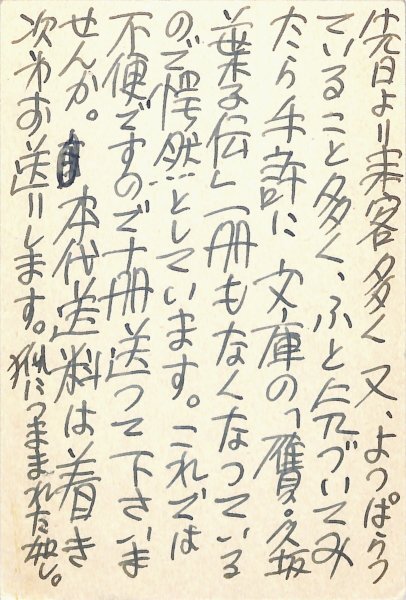 先日より来客多く又、よっぱらっ
ていること多く、ふと気づいてみ
たら手許に文庫の「贋・久坂
葉子伝」一冊もなくなっている
ので愕然としています。これでは
不便ですので十冊送って下さいま
せんか。本代送料は着き
次第お送りします。狐につままれた如し。